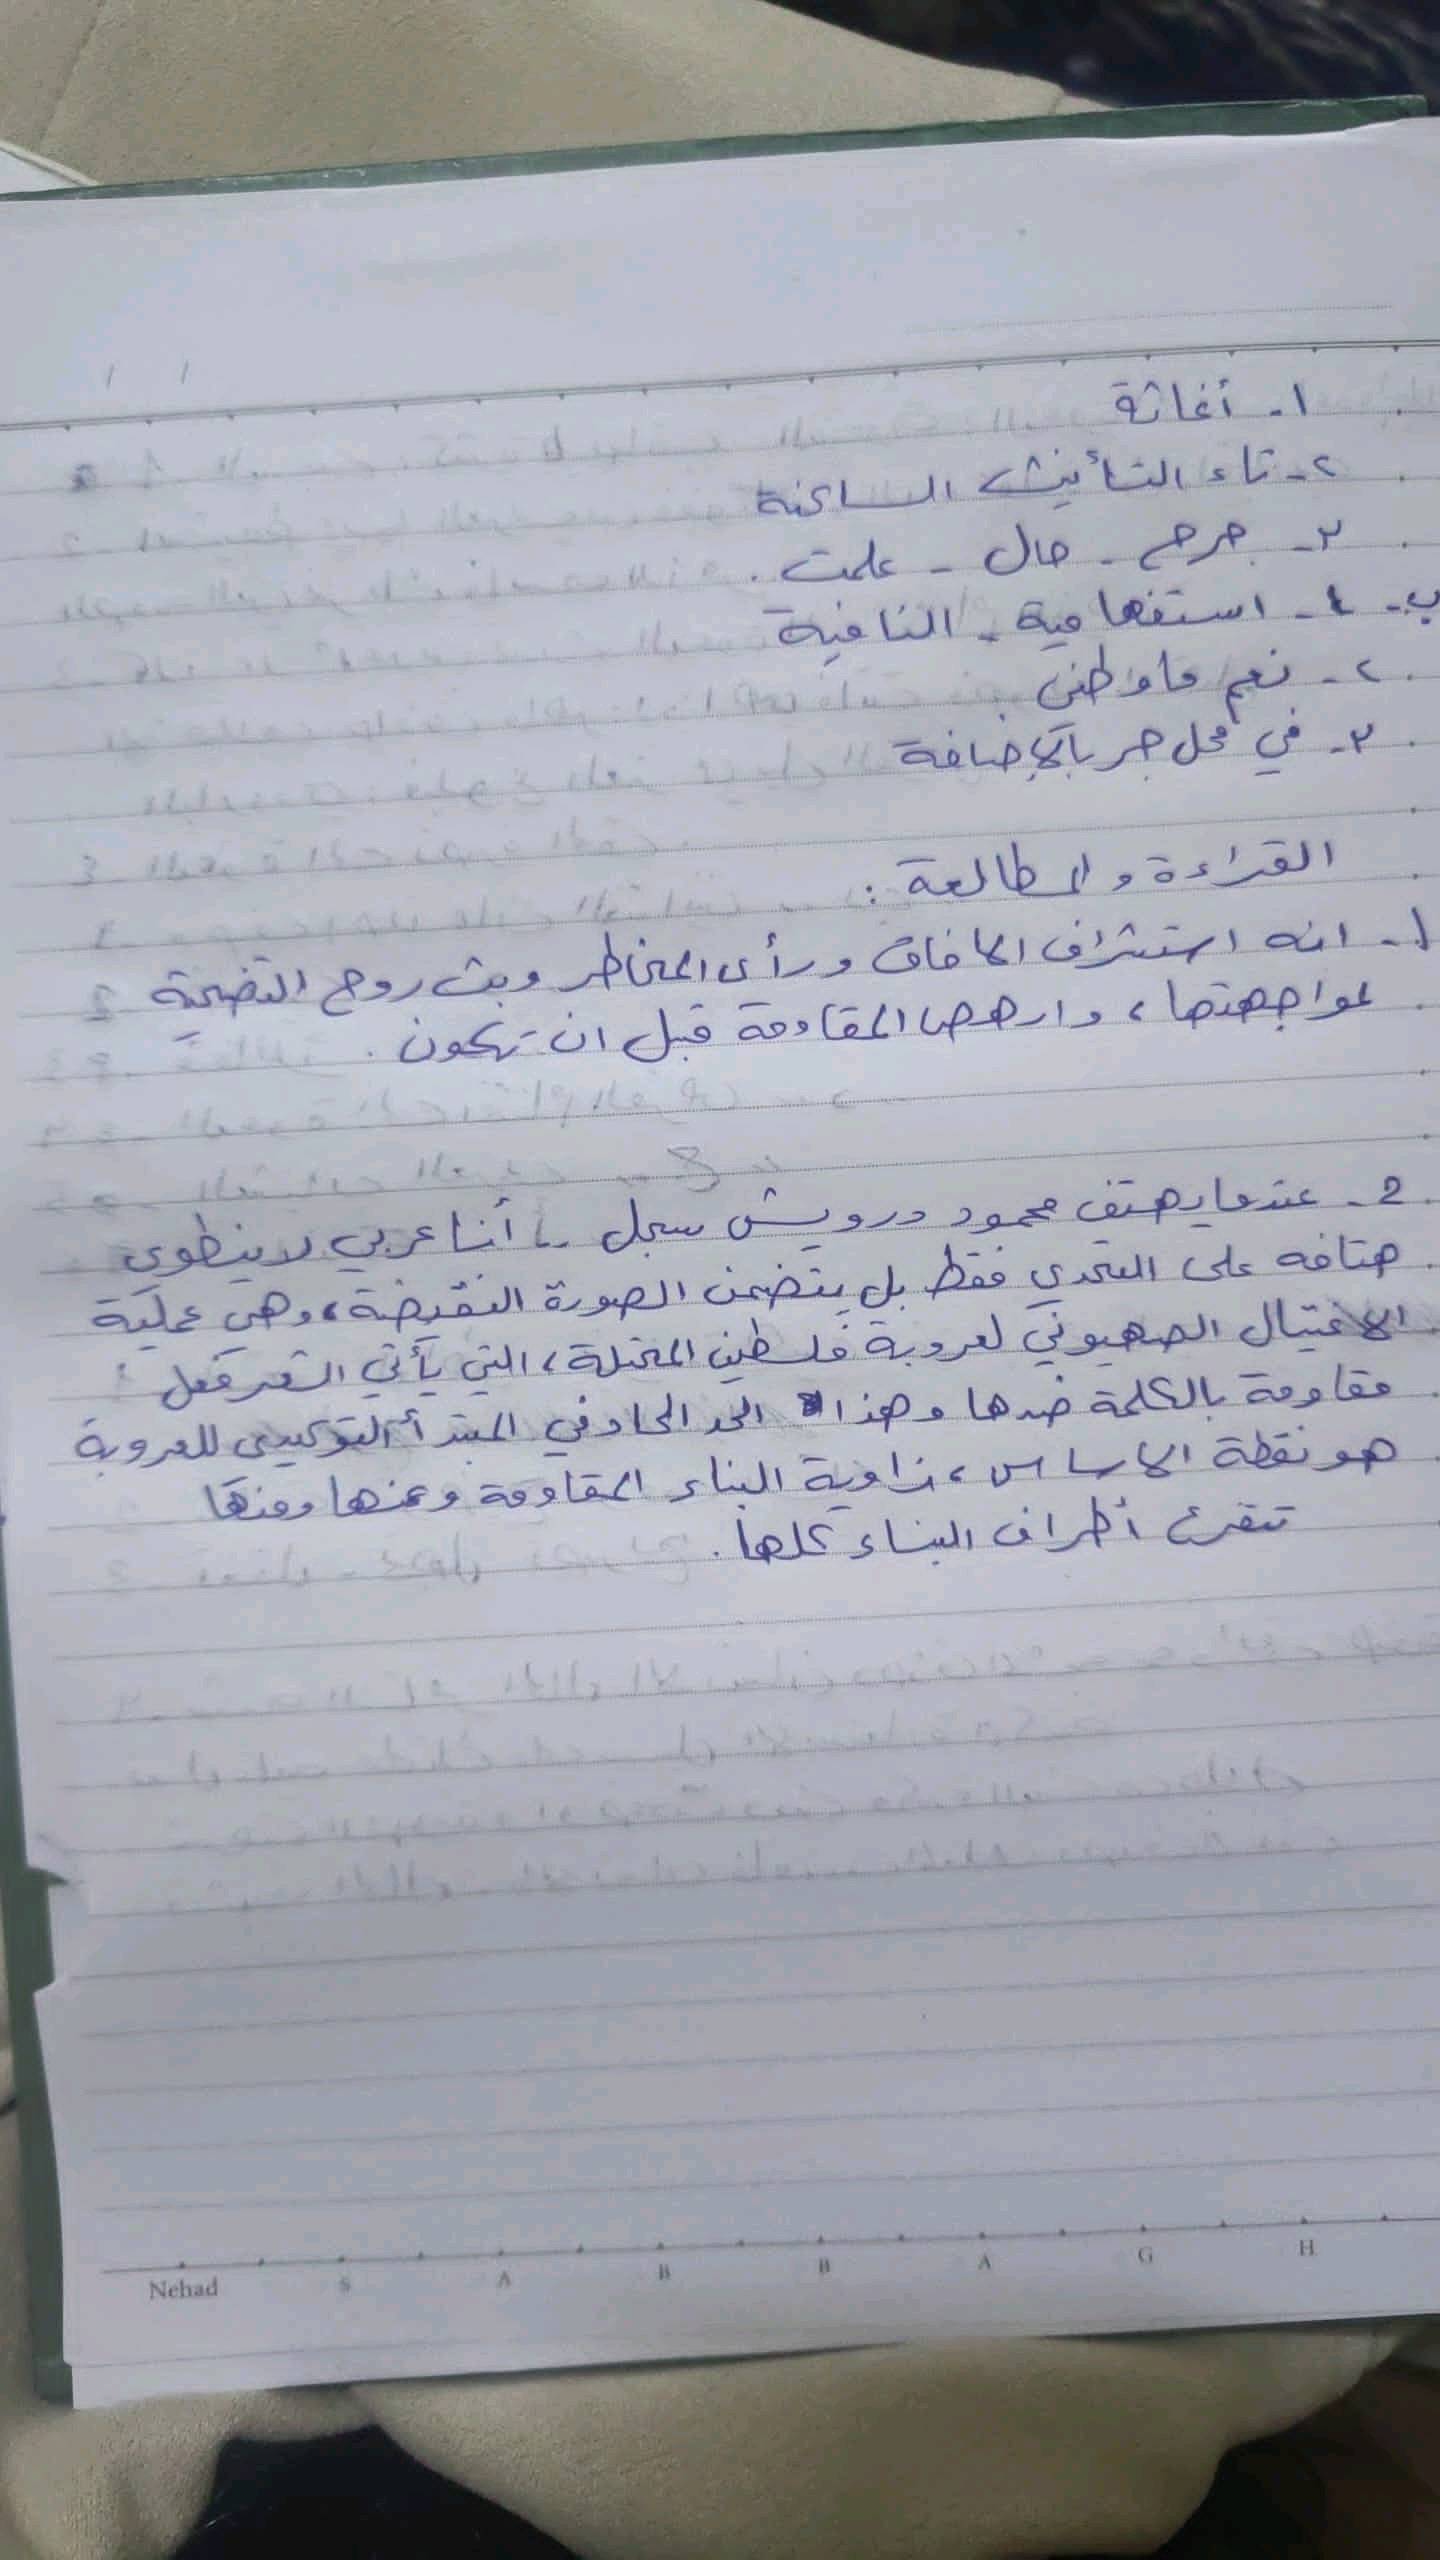 ١- أغاثة
٢- تاء التأنيث الساكنة
٣- جرح - حال - علمت .
ب- ١- استفهامية - النافية
٢- نعم ما وطني
٣- في محل جر بالإضافة
القراءة والمطالعة :
١- انه استشراف الافاق ورأى المخاطر وبث روح التضحية
لمواجهتها ، وارهص المقاومة قبل ان تكون .
2- عندما يهتف محمود درويش سجل .. أنا عربي لا ينطوي
هتافه على التحدي فقط بل يتضمن الصورة النقيضة ، وهي عملية
الاغتيال الصهيوني لعروبة فلسطين المحتلة ، التي يأتي الشعر كفعل
مقاومة بالكلمة ضدها وهذا الحد الحاد في المبتدأ التوكيدي للعروبة
هو نقطة الاساس ، زاوية البناء المقاومة وعنها ومنها
تتفرع أطراف البناء كلها .
Nehad S A B B A G H